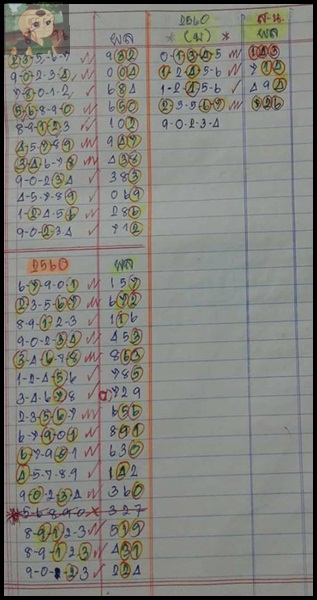 ผล
2-3-5-6-7 932
9-0-2-3-4 004
7-8-0-1-2 684
5-6-8-9-0 650
8-9-1-2-3 102
4-5-7-8-9 947
3-4-6-7-8 438
9-0-2-3-4 383
4-5-7-8-9 069
1-2-4-5-6 286
9-0-2-3-4 712
2560 ผล
6-7-9-0-1 157
2-3-5-6-7 672
8-9-1-2-3 116
9-0-2-3-4 453
3-4-6-7-8 864
1-2-4-5-6 785
3-4-6-7-8 729
2-3-5-6-7 656
6-7-9-0-1 891
6-7-9-8-1 630
4-5-7-8-9 142
9-0-2-3-4 360
5-6-8-9-0 327
8-9-1-2-3 519
8-9-1-2-3 431
9-0-1-2-3 224
2560
(บ) ผล
0-1-3-4-5 143
1-2-4-5-6 714
1-2-4-5-6 494
2-3-5-6-7 726
9-0-2-3-4